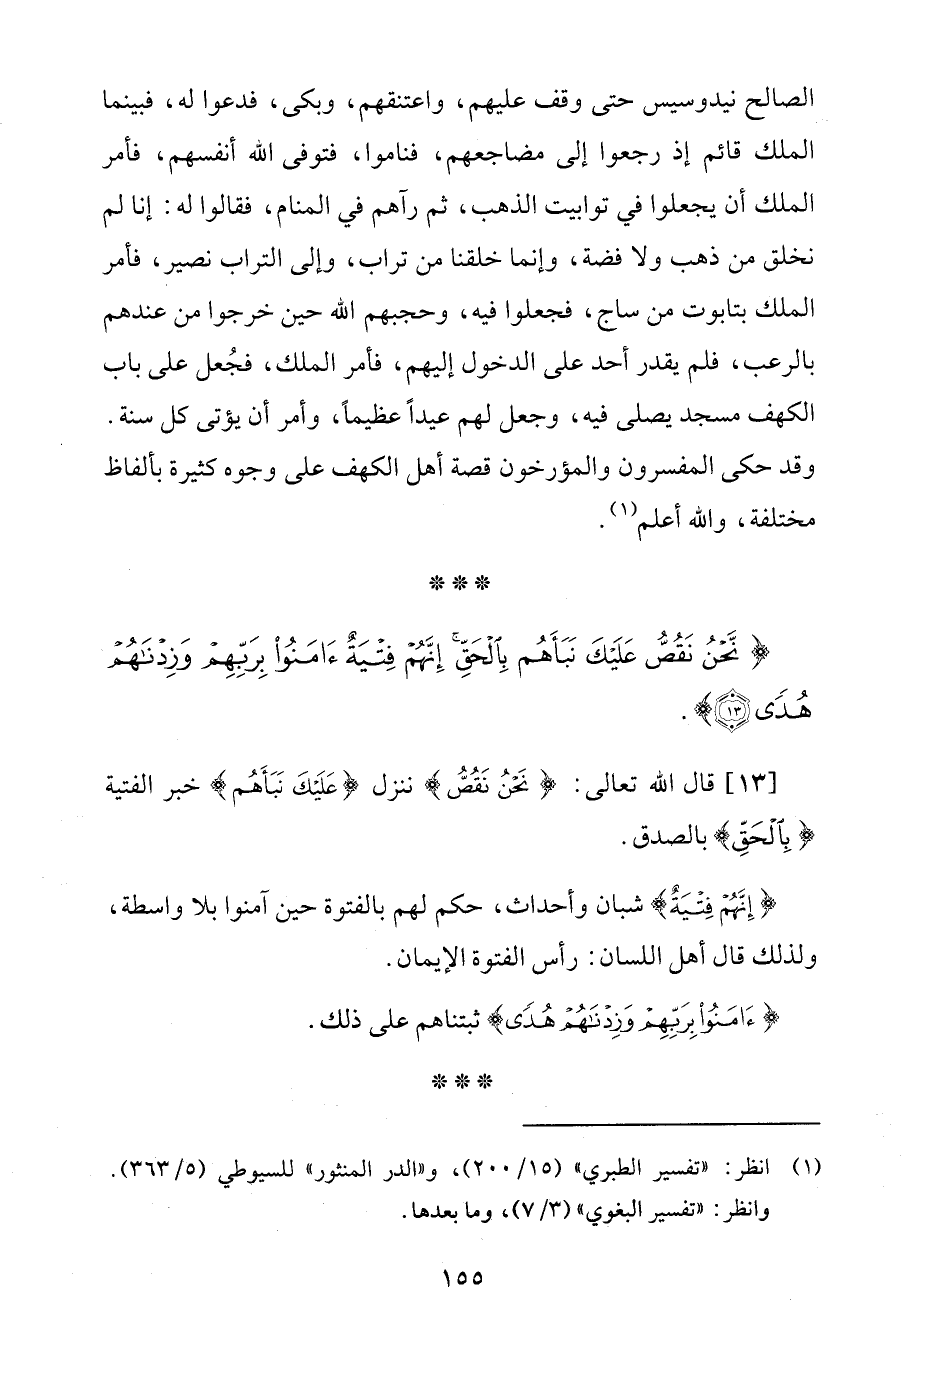 الصالح نيدوسيس حتى وقف عليهم، واعتنقهم، وبكى، فدعوا له، فبينما
الملك قائم إذ رجعوا إلى مضاجعهم، فناموا، فتوفى الله أنفسهم، فأمر
الملك أن يجعلوا في توابيت الذهب، ثم رآهم في المنام، فقالوا له: إنا لم
نخلق من ذهب ولا فضة، وإنما خلقنا من تراب، وإلى التراب نصير، فأمر
الملك بتابوت من ساج، فجعلوا فيه، وحجبهم الله حين خرجوا من عندهم
بالرعب، فلم يقدر أحد على الدخول إليهم، فأمر الملك، فجُعل على باب
الكهف مسجد يصلى فيه، وجعل لهم عيداً عظيماً، وأمر أن يؤتى كل سنة.
وقد حكى المفسرون والمؤرخون قصة أهل الكهف على وجوه كثيرة بألفاظ
مختلفة، والله أعلم(١).
* * *
﴿ نَّحْنُ نَقُصُّ عَلَيْكَ نَبَأَهُم بِٱلْحَقِّ ۚ إِنَّهُمْ فِتْيَةٌ ءَامَنُوا۟ بِرَبِّهِمْ وَزِدْنَٰهُمْ
هُدًى ١٣﴾.
[١٣] قال الله تعالى: ﴿ نَحْنُ نَقُصُّ﴾ ننزل ﴿عَلَيْكَ نَبَأَهُم﴾ خبر الفتية
﴿ بِٱلْحَقِّ﴾ بالصدق.
﴿ إِنَّهُمْ فِتْيَةٌ﴾ شبان وأحداث، حكم لهم بالفتوة حين آمنوا بلا واسطة،
ولذلك قال أهل اللسان: رأس الفتوة الإيمان.
﴿ ءَامَنُوا۟ بِرَبِّهِمْ وَزِدْنَٰهُمْ هُدًى﴾ ثبتناهم على ذلك.
* * *
(١) انظر: «تفسير الطبري» (١٥/ ٢٠٠)، و«الدر المنثور» للسيوطي (٥/ ٣٦٣).
وانظر: «تفسير البغوي» (٣/ ٧)، وما بعدها.
١٥٥